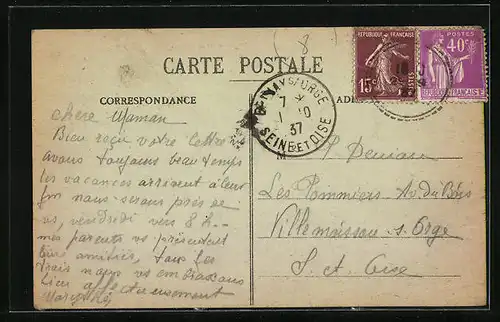 8
CARTE POSTALE
CORRESPONDANCE
REPUBLIQUE FRANÇAISE
15c
POSTES
POSTES
40c
REPUBLIQUE FRANÇAISE
S/ORGE
7
1 10
37
SEINE ET OISE
AD
M
Chère Maman
Bien reçu votre lettre
Avons toujours beau temps
les vacances arrivent à leur
fin nous serons près de
vs, vendredi vers 8 h
mes parents vs présentent
leur amitiés, tous les
trois nous vs embrassons
bien affectueusement
Les Pommiers Av. du Bois
Villemoisson s. Orge
S et Oise